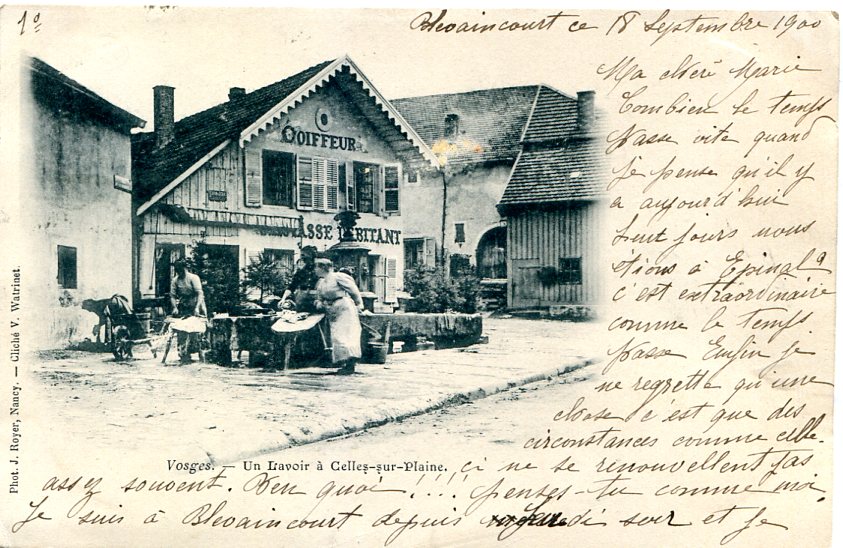 1º
Blevaincourt ce 18 Septembre 1900
Ma chère Marie
Combien le temps
passe vite quand
je pense qu'il y
a aujourd'hui
huit jours nous
étions à Epinal
c'est extraordinaire
comme le temps
passe Enfin je
ne regrette qu'une
chose c'est que des
circonstances comme celle-
ci ne se renouvellent pas
assez souvent. Ben quoi !!!! penses-tu comme moi.
Je suis à Blevaincourt depuis jeudi soir et je
COIFFEUR
CASSE DÉBITANT
Phot. J. Royer, Nancy. — Cliché V. Watrinet.
Vosges. — Un Lavoir à Celles-sur-Plaine.